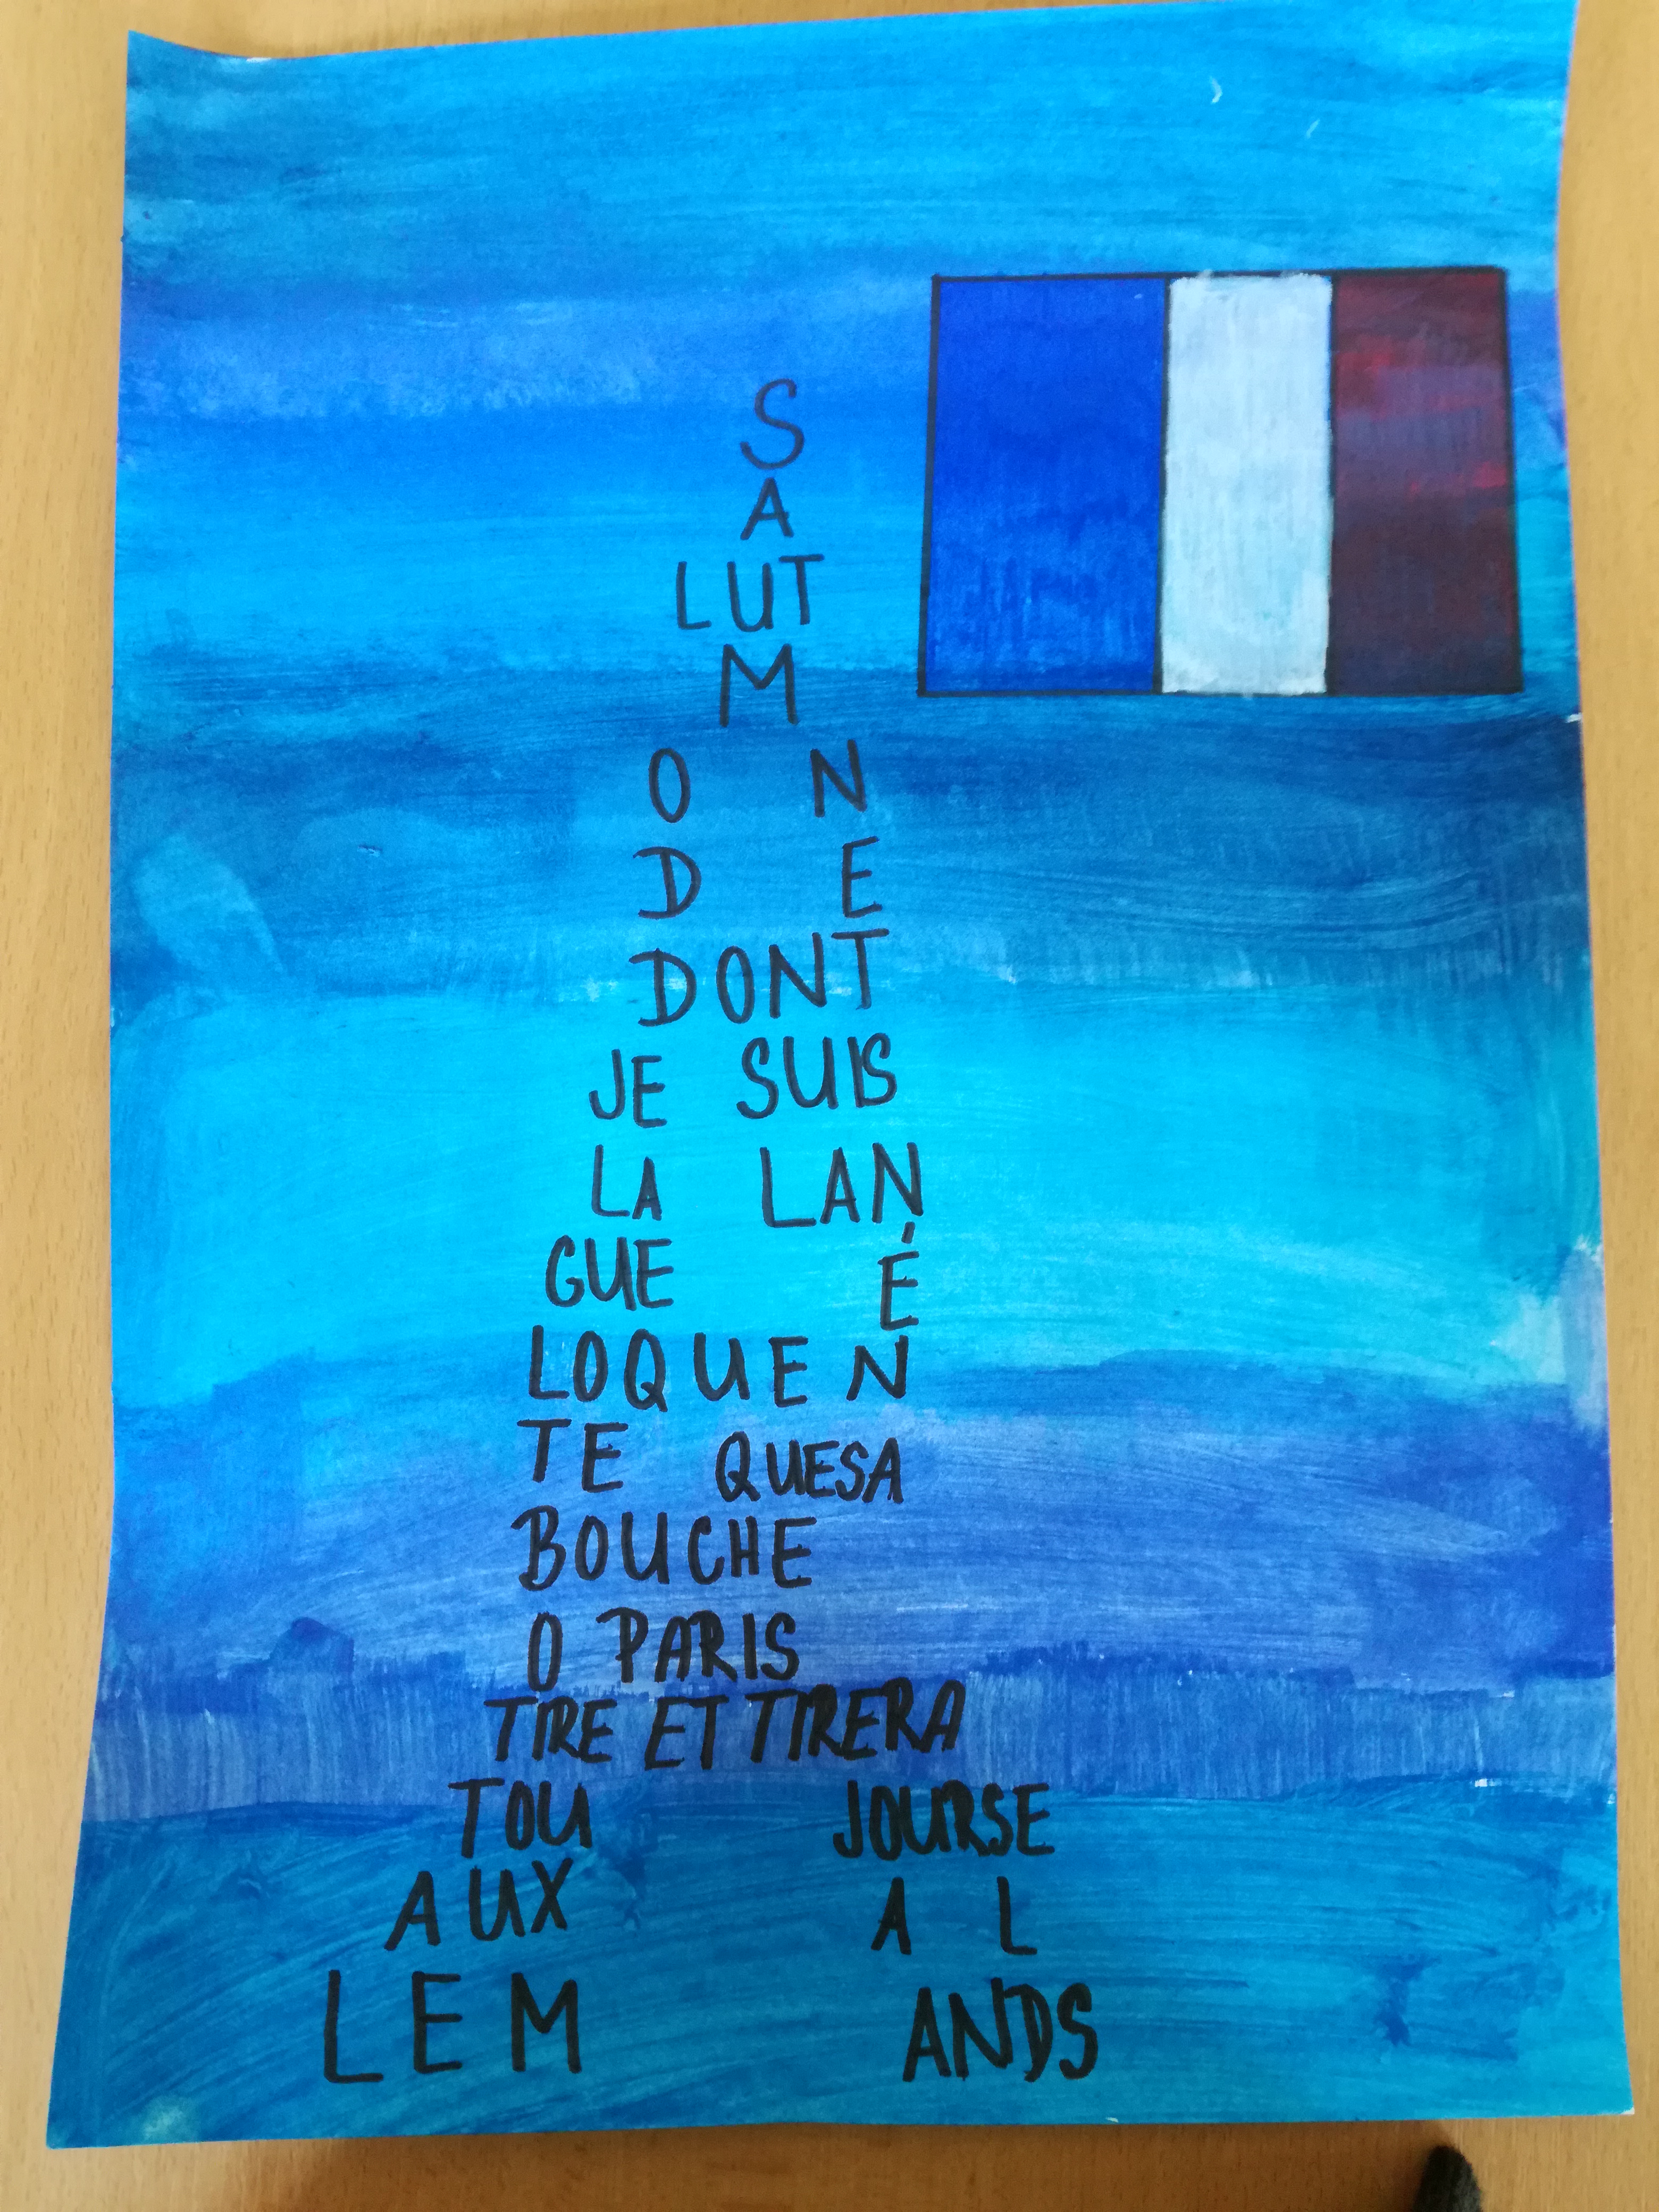 S
A
LUT
M
O N
D E
DONT
JE SUIS
LA LAN
GUE É
LOQUEN
TE QUESA
BOUCHE
O PARIS
TIRE ET TIRERA
TOU JOURSE
AUX A L
LEM ANDS